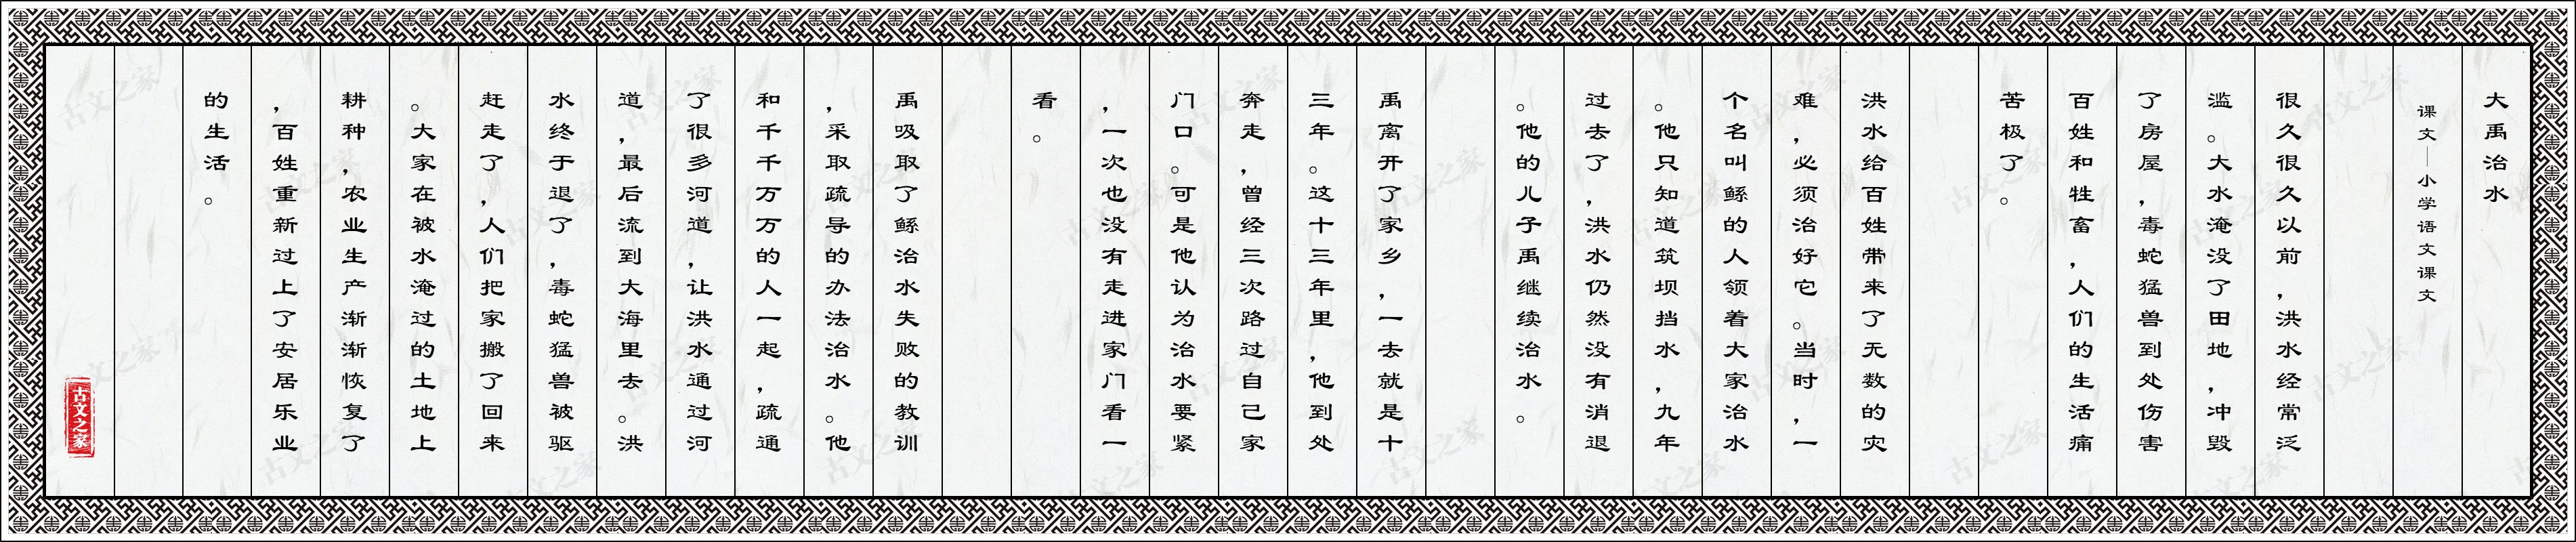 大禹治水
课文—小学语文课文
很久很久以前，洪水经常泛
滥。大水淹没了田地，冲毁
了房屋，毒蛇猛兽到处伤害
百姓和牲畜，人们的生活痛
苦极了。
洪水给百姓带来了无数的灾
难，必须治好它。当时，一
个名叫鲧的人领着大家治水
。他只知道筑坝挡水，九年
过去了，洪水仍然没有消退
。他的儿子禹继续治水。
禹离开了家乡，一去就是十
三年。这十三年里，他到处
奔走，曾经三次路过自己家
门口。可是他认为治水要紧
，一次也没有走进家门看一
看。
禹吸取了鲧治水失败的教训
，采取疏导的办法治水。他
和千千万万的人一起，疏通
了很多河道，让洪水通过河
道，最后流到大海里去。洪
水终于退了，毒蛇猛兽被驱
赶走了，人们把家搬了回来
。大家在被水淹过的土地上
耕种，农业生产渐渐恢复了
，百姓重新过上了安居乐业
的生活。
古文之家